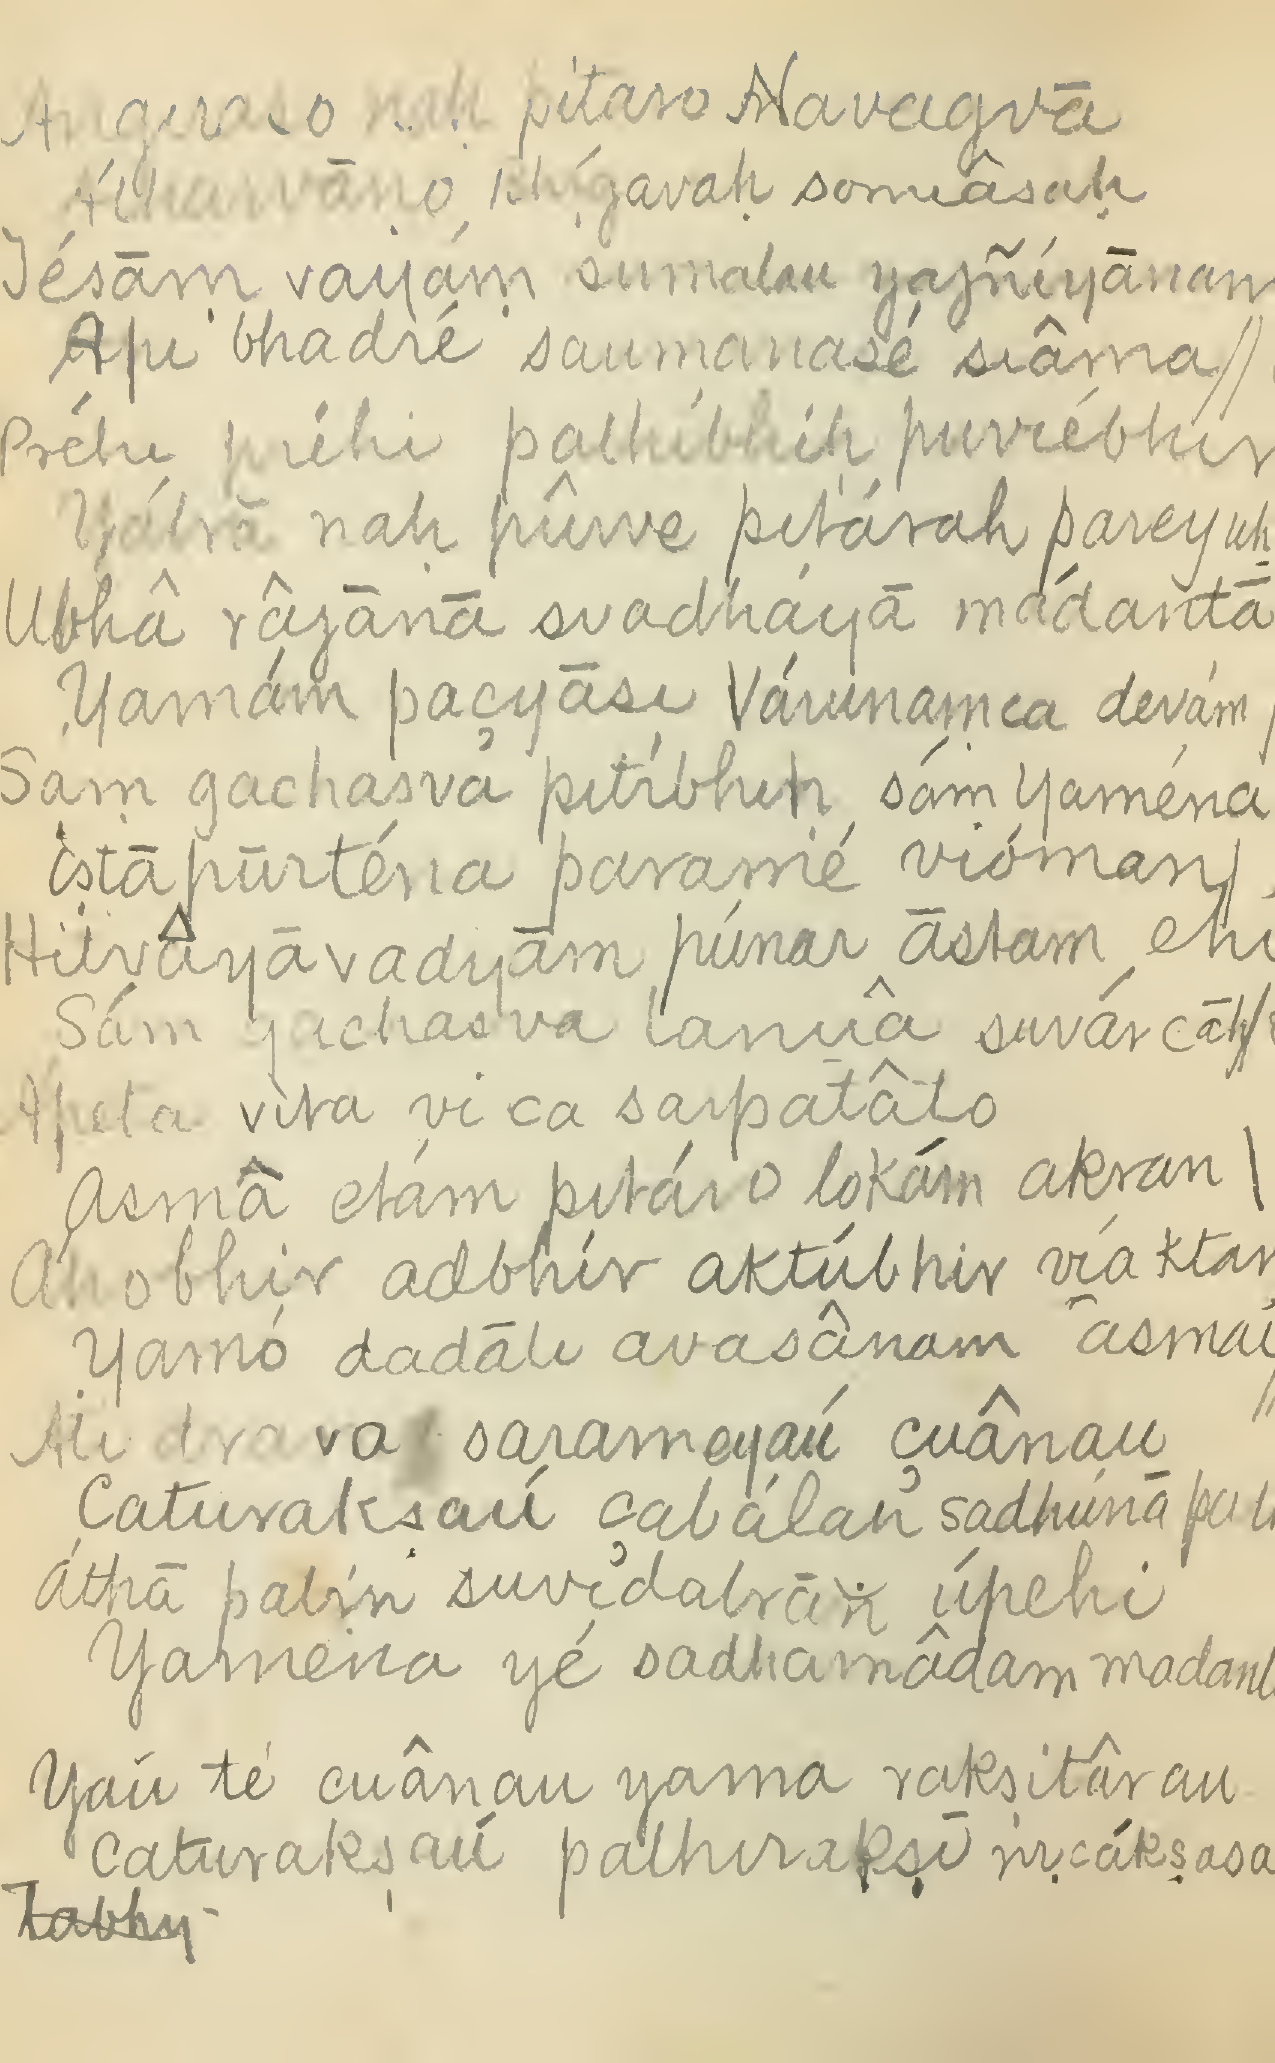 Angiraso naḥ pitaro Navagvā
Átharvāṇo bhṛ́gavaḥ somiâsaḥ
Tésām vayáṃ sumatau yajñíyānam
Api bhadré saumanasé siâma //
Préhi préhi pathíbhiḥ purviébhir
Yátrā naḥ pûrve pitárah pareyuḥ
Ubhâ râjānā svadháyā mádantā
Yamám paçyāsi Váruṇaṃca devám
Saṃ gachasva pitṛ́bhiḥ sám Yaména
iṣtāpūrténa paramé vióman /
Hitvâyāvadyám púnar āstam ehi
Sám gachasva tanúâ suvárcāḥ //
Apeta vìta vi ca sarpatâto
Asmâ etám pitáro lokám akran \
Ahobhir adbhír aktúbhir víaktam
Yamó dadāti avasânam asmai //
Ati drava sarameyaú çuânau
Caturakṣaú çabálau sadhúnā
áthā pitṛ́n suvidátrāṅ úpehi
Yamena yé sadhamâdam madanti
Yaú té cuânau yama rakṣitârau
Caturakṣaú pathirakṣī nṛcákṣasa
Tabhy-